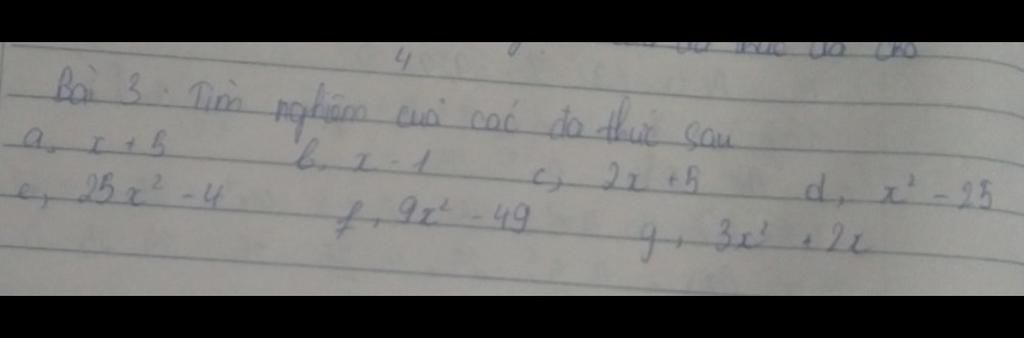 đa thức đã cho
4
Bài 3: Tìm nghiệm của các đa thức sau
a, x + 5 b, x - 1 c, 2x + 5 d, x² - 25
e, 25x² - 4 f, 9x² - 49 g, 3x² + 2x